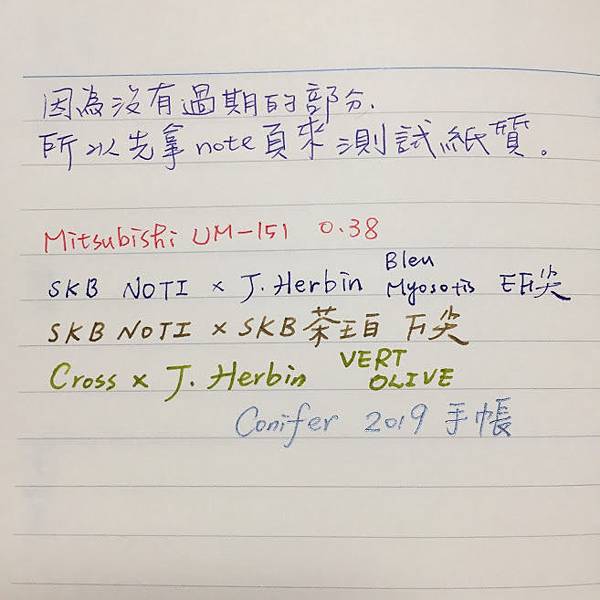 因為沒有過期的部分.
所以先拿note頁來測試紙質。
Mitsubishi UM-151 0.38
SKB NOTI × J. Herbin Bleu Myosotis EF尖
SKB NOTI × SKB 茶 F尖
Cross × J. Herbin VERT OLIVE
Conifer 2019 手帳